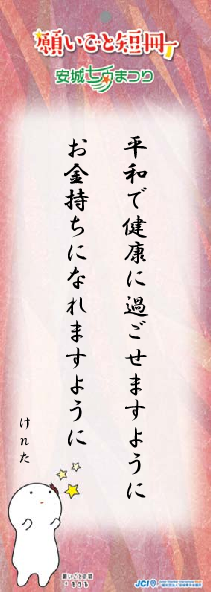 願いごと短冊
安城七夕まつり
平和で健康に過ごせますように
お金持ちになれますように
けんた
願いごと短冊
JCI